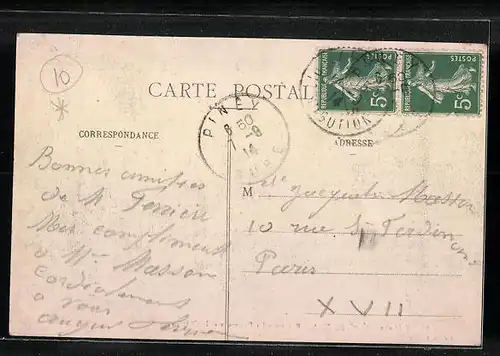 10
CARTE POSTALE
POSTES
5c
POSTES
5c
REPUBLIQUE FRANÇAISE
PINEY
8 50
7 -9
14
AUBE
CORRESPONDANCE
ADRESSE
Bonnes amitiés
de M
Mes compliments
à Mme Masson
Cordialement
à vous
M Jacques Masson
10 rue St Ferdinand
Paris
XVII